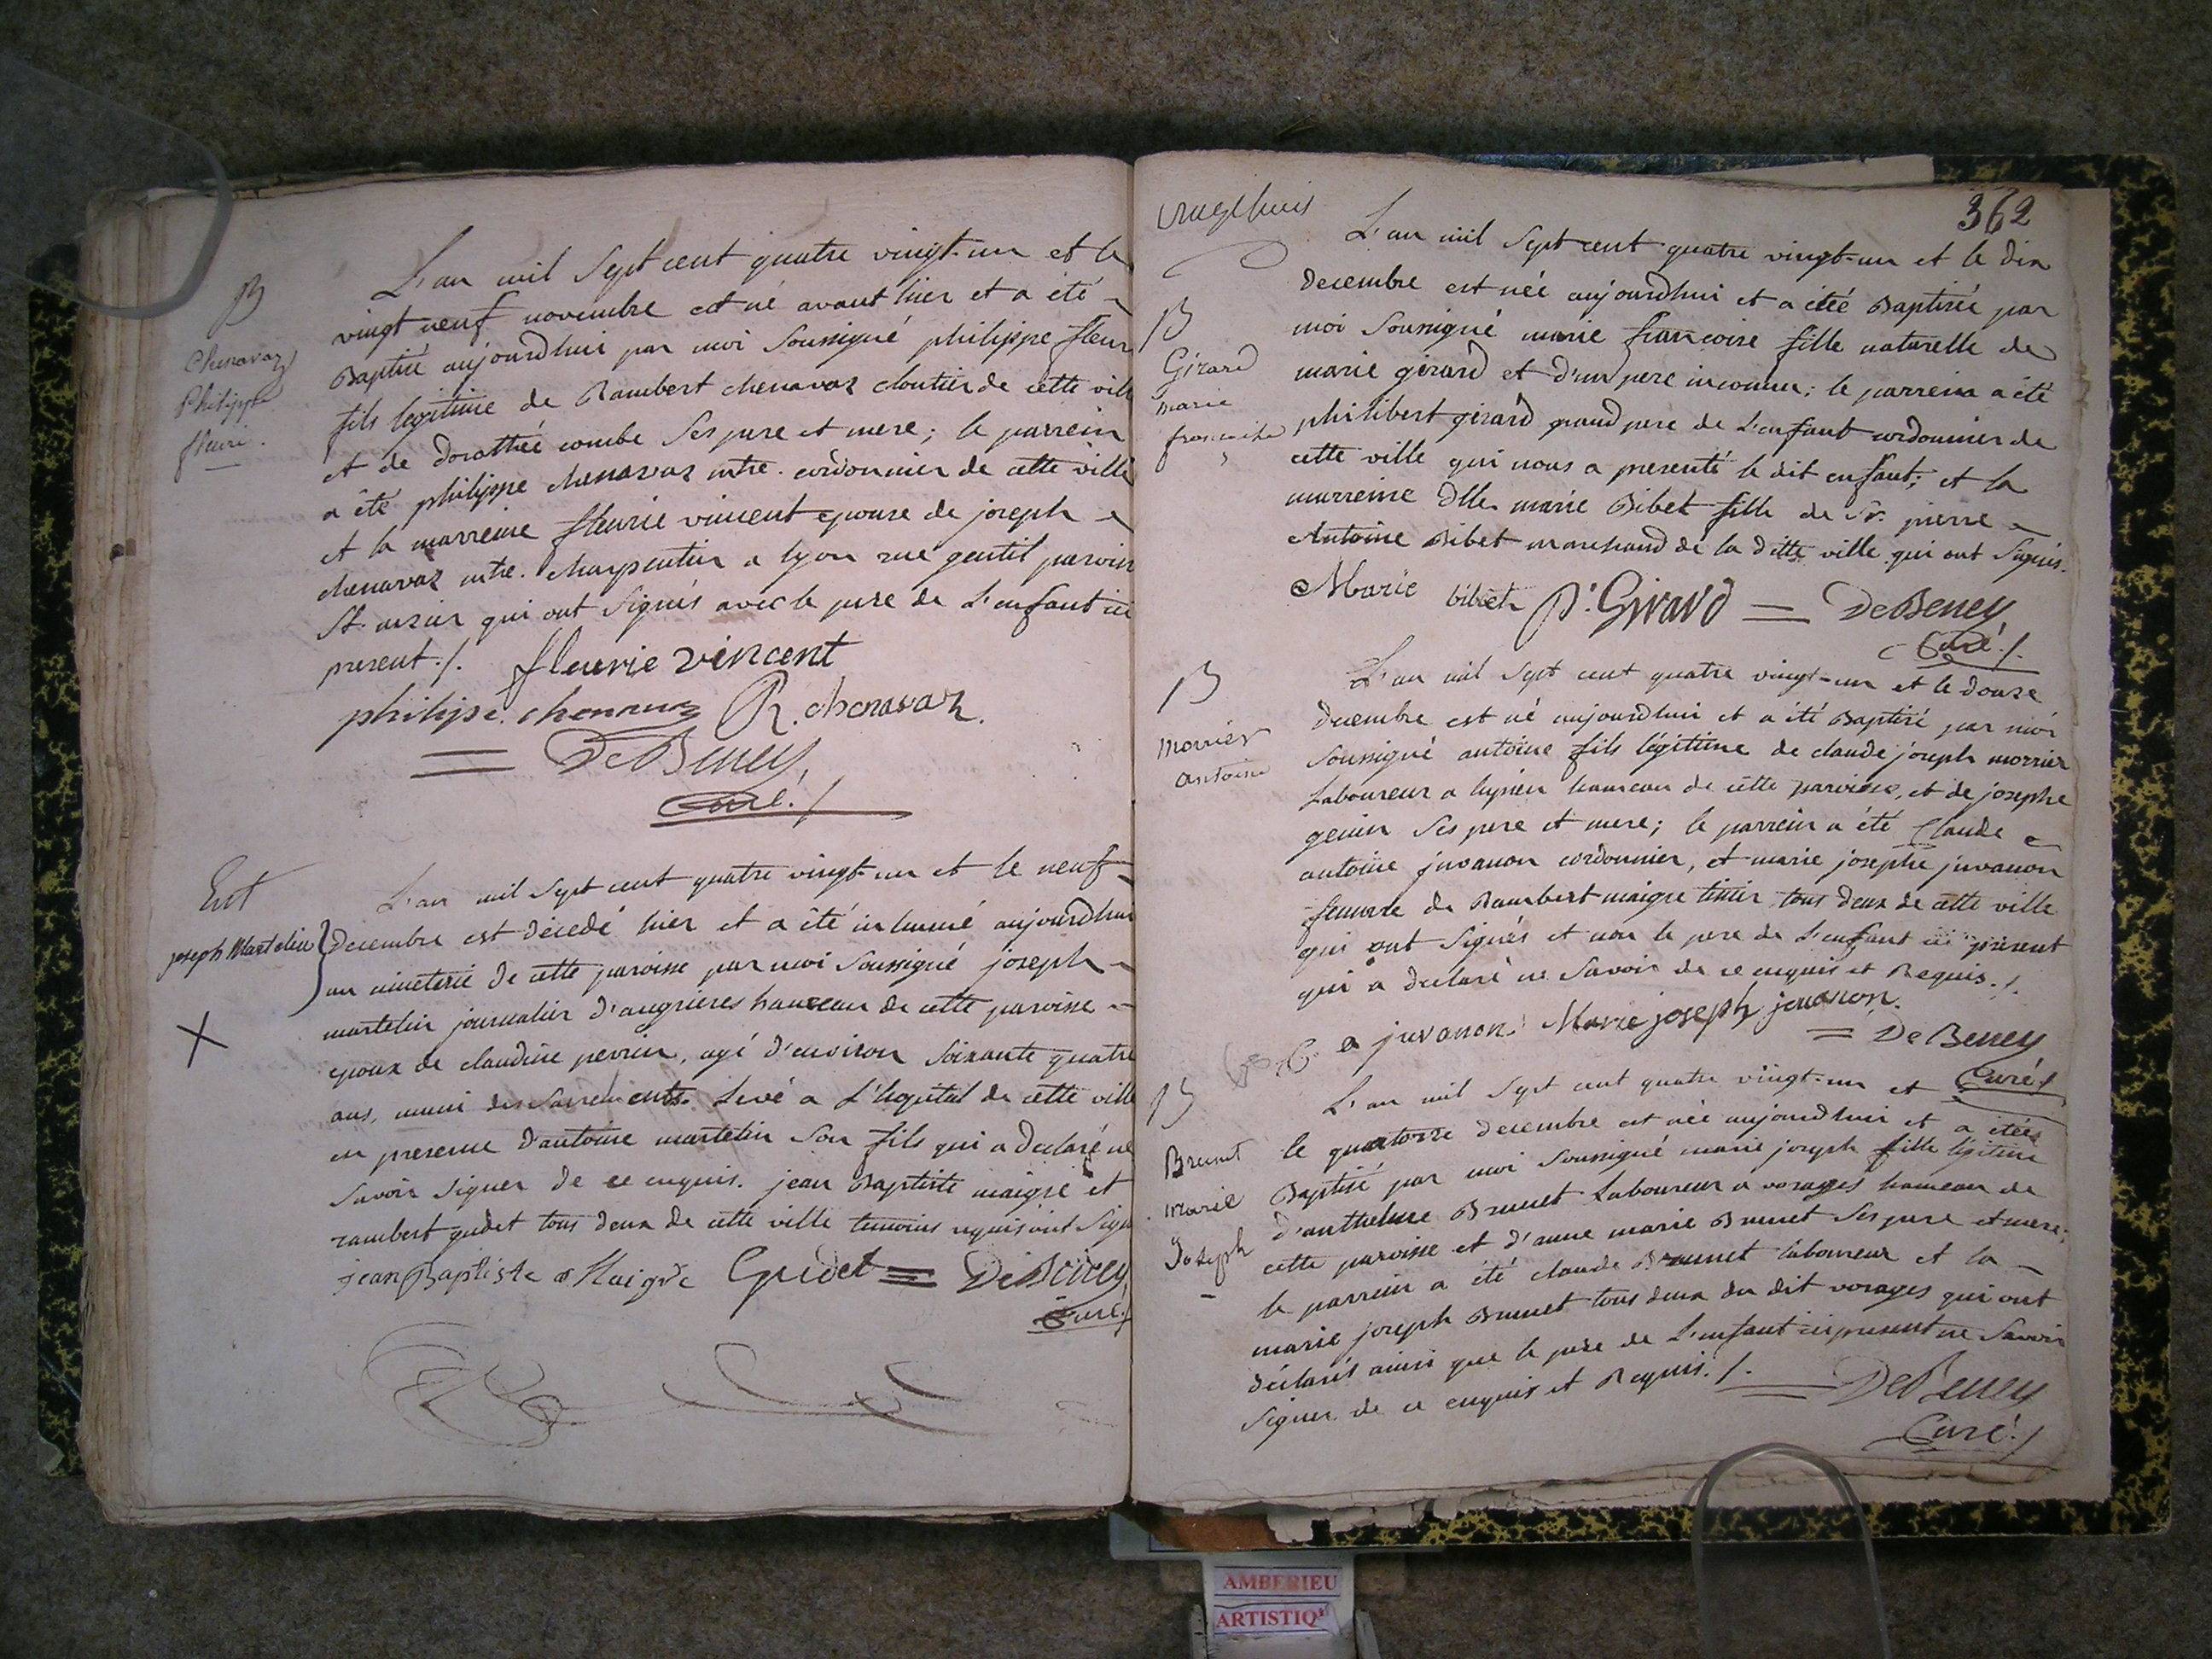 B
Chenavaz
Philippe
fleuri.
L'an mil Sept cent quatre vingt-un et le
vingt neuf novembre est né avant hier et a été
Baptisé aujourdhui par moi Soussigné philippe fleuri
fils legitime de Rambert chenavaz cloutier de cette ville
et de dorothée combe Ses pere et mere; le parrein
a été philippe chenavaz mtre. cordonnier de cette ville
et la marreine fleurie vincent epouse de joseph
chenavaz mtre. charpentier a lyon rue gentil paroisse
St. nizier qui ont Signés avec le pere de L'enfant ici
present./. fleurie vincent
philipe. chenavaz R. chenavaz.
= DeBeney,
Curé./
Ent
joseph Martelin
L'an mil Sept cent quatre vingt-un et le neuf
Decembre est décedé hier et a été inhumé aujourdhui
au cimeterie de cette paroisse par moi Soussigné joseph
martelin journalier d'angrieres hameau de cette paroisse
epoux de claudine perrin, agé d'environ Soixante quatre
ans, muni des Sacrements. Levé a L'hopital de cette ville
en presence d'antoine martelin Son fils qui a declaré ne
Savoir Signer de ce enquis. jean Baptiste maigre et
rambert gudet tous deux de cette ville temoins requis ont Signé
jean Baptiste Maigre Gudet = DeBeney
Curé./
362
L'an mil Sept cent quatre vingt-un et le dix
decembre est née aujourdhui et a étéé Baptisée par
moi Soussigné marie francoise fille naturelle de
marie girard et d'un pere inconnu; le parrein a été
philibert girard grand pere de L'enfant cordonnier de
cette ville qui nous a presenté le dit enfant; et la
marreine dlle. marie Bibet fille de Sr. pierre
Antoine Bibet marchand de la ditte ville qui ont Signés.
Marie bibet P. Girard = DeBeney
Curé./.
B
Girard
marie
francoise
L'an mil Sept cent quatre vingt-un et le douze
decembre est né aujourdhui et a été Baptisé par moi
Soussigné antoine fils légitime de claude joseph morrier
Laboureur a hyrien hameau de cette paroisse, et de josephe
genin Ses pere et mere; le parrein a été Claude
antoine juvanon cordonnier, et marie josephe juvanon
femme de Rambert maigre tous deux de cette ville
qui ont Signés et non le pere de L'enfant ici présent
qui a declaré ne Savoir de ce enquis et Requis./.
juvanon Marie joseph juvanon.
= DeBeney
Curé/
B
Morrier
antoine
L'an mil Sept cent quatre vingt-un et
le quatorze decembre est née aujourdhui et a étéé
Baptisé par moi Soussigné marie joseph fille légitime
d'anthelme Brunet Laboureur a vorages hameau de
cette paroisse et d'anne marie Brunet Ses pere et mere;
le parrein a été claude Brunet laboureur et la
marie joseph Brunet tous deux du dit vorages qui ont
déclarés ainsi que le pere de L'enfant ici present ne Savoir
Signer de ce enquis et Requis./. = DeBeney
Curé./
B
Brunet
marie
Joseph
AMBERIEU
ARTISTIQ